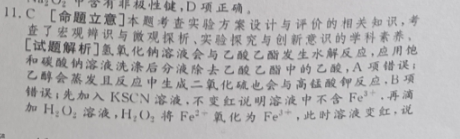 Na₂O₂ 中含有非极性键,D项正确。
11. C 【命题立意】本题考查实验方案设计与评价的相关知识,考
查了宏观辨识与微观探析、实验探究与创新意识的学科素养。
【试题解析】氢氧化钠溶液会与乙酸乙酯发生水解反应,应用饱
和碳酸钠溶液洗涤后分液除去乙酸乙酯中的乙酸,A项错误;
乙醇会蒸发且反应中生成二氧化硫也会与高锰酸钾反应,B项
错误;先加入KSCN溶液,不变红说明溶液中不含Fe³⁺,再滴
加H₂O₂溶液,H₂O₂将Fe²⁺氧化为Fe³⁺,此时溶液变红,说